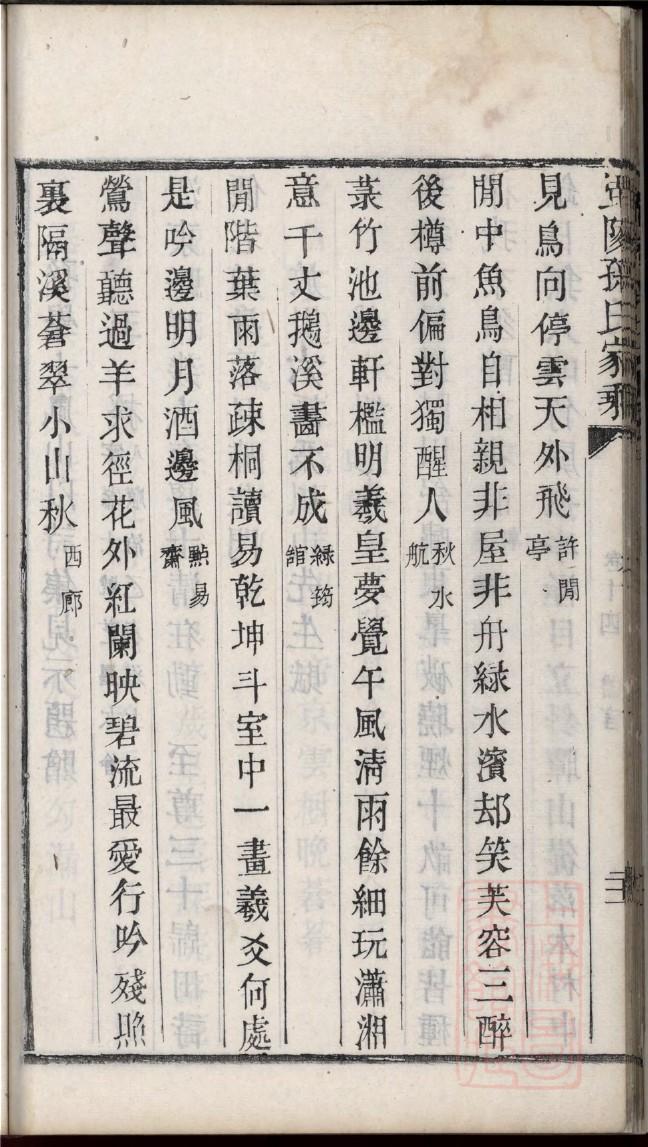 孫氏家乘
見鳥向停雲天外飛許閒亭
閒中魚鳥自相親非屋非舟綠水濱却笑芙容三醉
後樽前偏對獨醒人秋水航
菉竹池邊軒檻明羲皇夢覺午風淸雨餘細玩瀟湘
意千丈鵝溪畵不成綠筠館
閒階葉雨落疎桐讀易乾坤斗室中一畫羲爻何處
是吟邊明月酒邊風點易齋
鶯聲聽過羊求徑花外紅闌映碧流最愛行吟殘照
裏隔溪蒼翠小山秋西廊